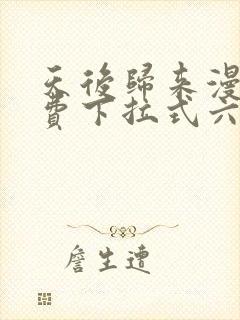 天後歸来漫
費下拉式六
詹生遭